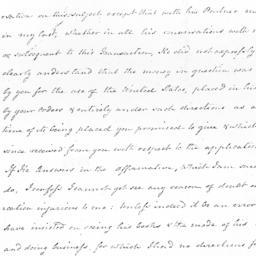 versation on this subject, except that with his Partner me
in my last; whether in all his conversations with m
or subsequent to this Transaction, He did not expressly
clearly understand that the money in question was
by you for the use of the United States, placed in his
by your Orders & entirely under such directions as a
time of its being placed you promised to give & which
since received from you with respect to the application
If He Answers in the affirmative, which I am sure
do, I confess I cannot see any reason of doubt or
reation injurious to me: Unless indeed it be an error
have insisted on seeing his books & the made of his
and doing business, for which I had no directions fr